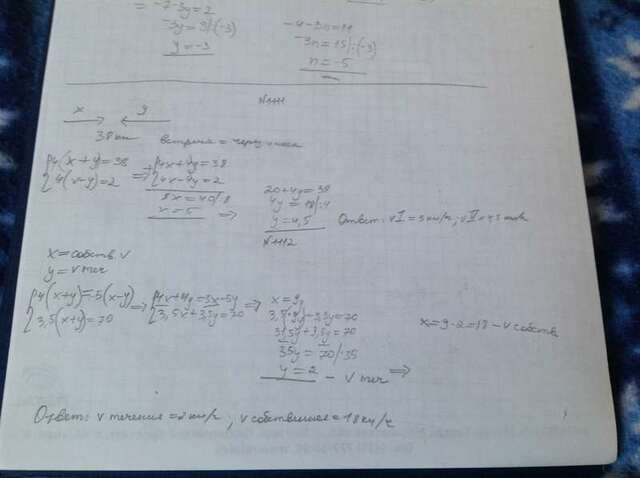 = -7-3y=2
-3y=9|:(-3)
y=-3
-4-3n=11
-3n=15|:(-3)
n=-5
x y
38 км встреча = через 4 часа
{4(x+y)=38 => {4x+4y=38
{4(x-y)=2 {4x-4y=2
8x=40|:8
x=5 =>
20+4y=38
4y=18|:4
y=4,5
Ответ: vI=5км/ч; vII=4,5
x=собств. v
y=v теч
{4(x+y)=5(x-y) => {4x+4y=5x-5y => x=9y
{3,5(x+y)=70 {3,5x+3,5y=70
3,5·9y+3,5y=70
31,5y+3,5y=70
35y=70|:35
y=2 - v теч =>
x=9·2=18 - v собств
Ответ: v течения=2км/ч, v собственная=18км/ч